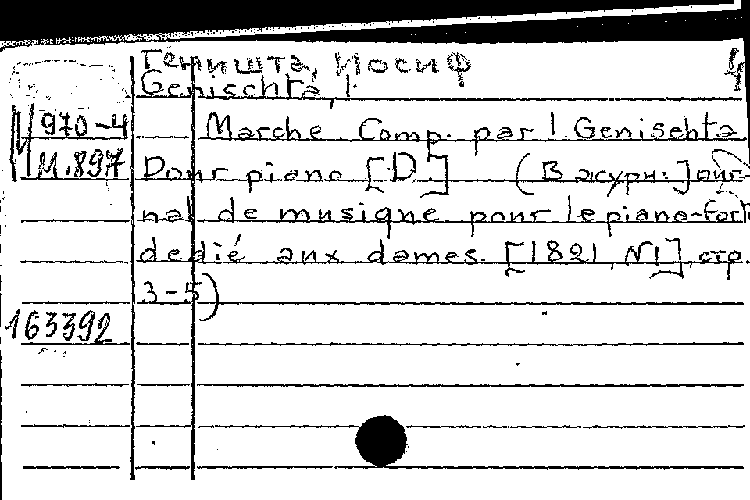 Геништа, Иосиф
4
Genischta, I.
М 970-4
Marche Comp. par I Genischta
М.897
Pour piano [D.] (В журн: Jour-
nal de musique pour le piano-fort
dedié aux dames. [1821, N1], стр.
3-5)
163392